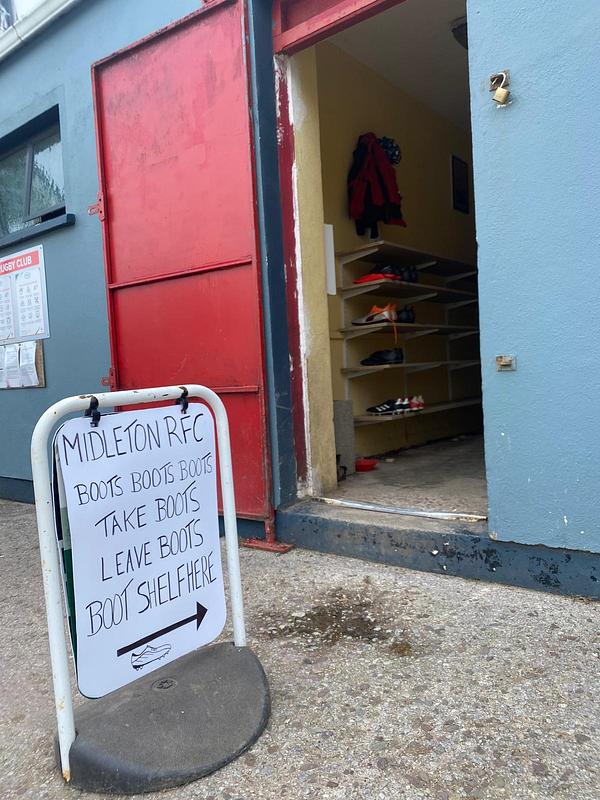 RUGBY CLUB
MIDLETON RFC
BOOTS BOOTS BOOTS
TAKE BOOTS
LEAVE BOOTS
BOOT SHELF HERE